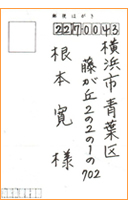 郵便はがき
2270043
横浜市青葉区
藤が丘2の2の1の702
根本寛様